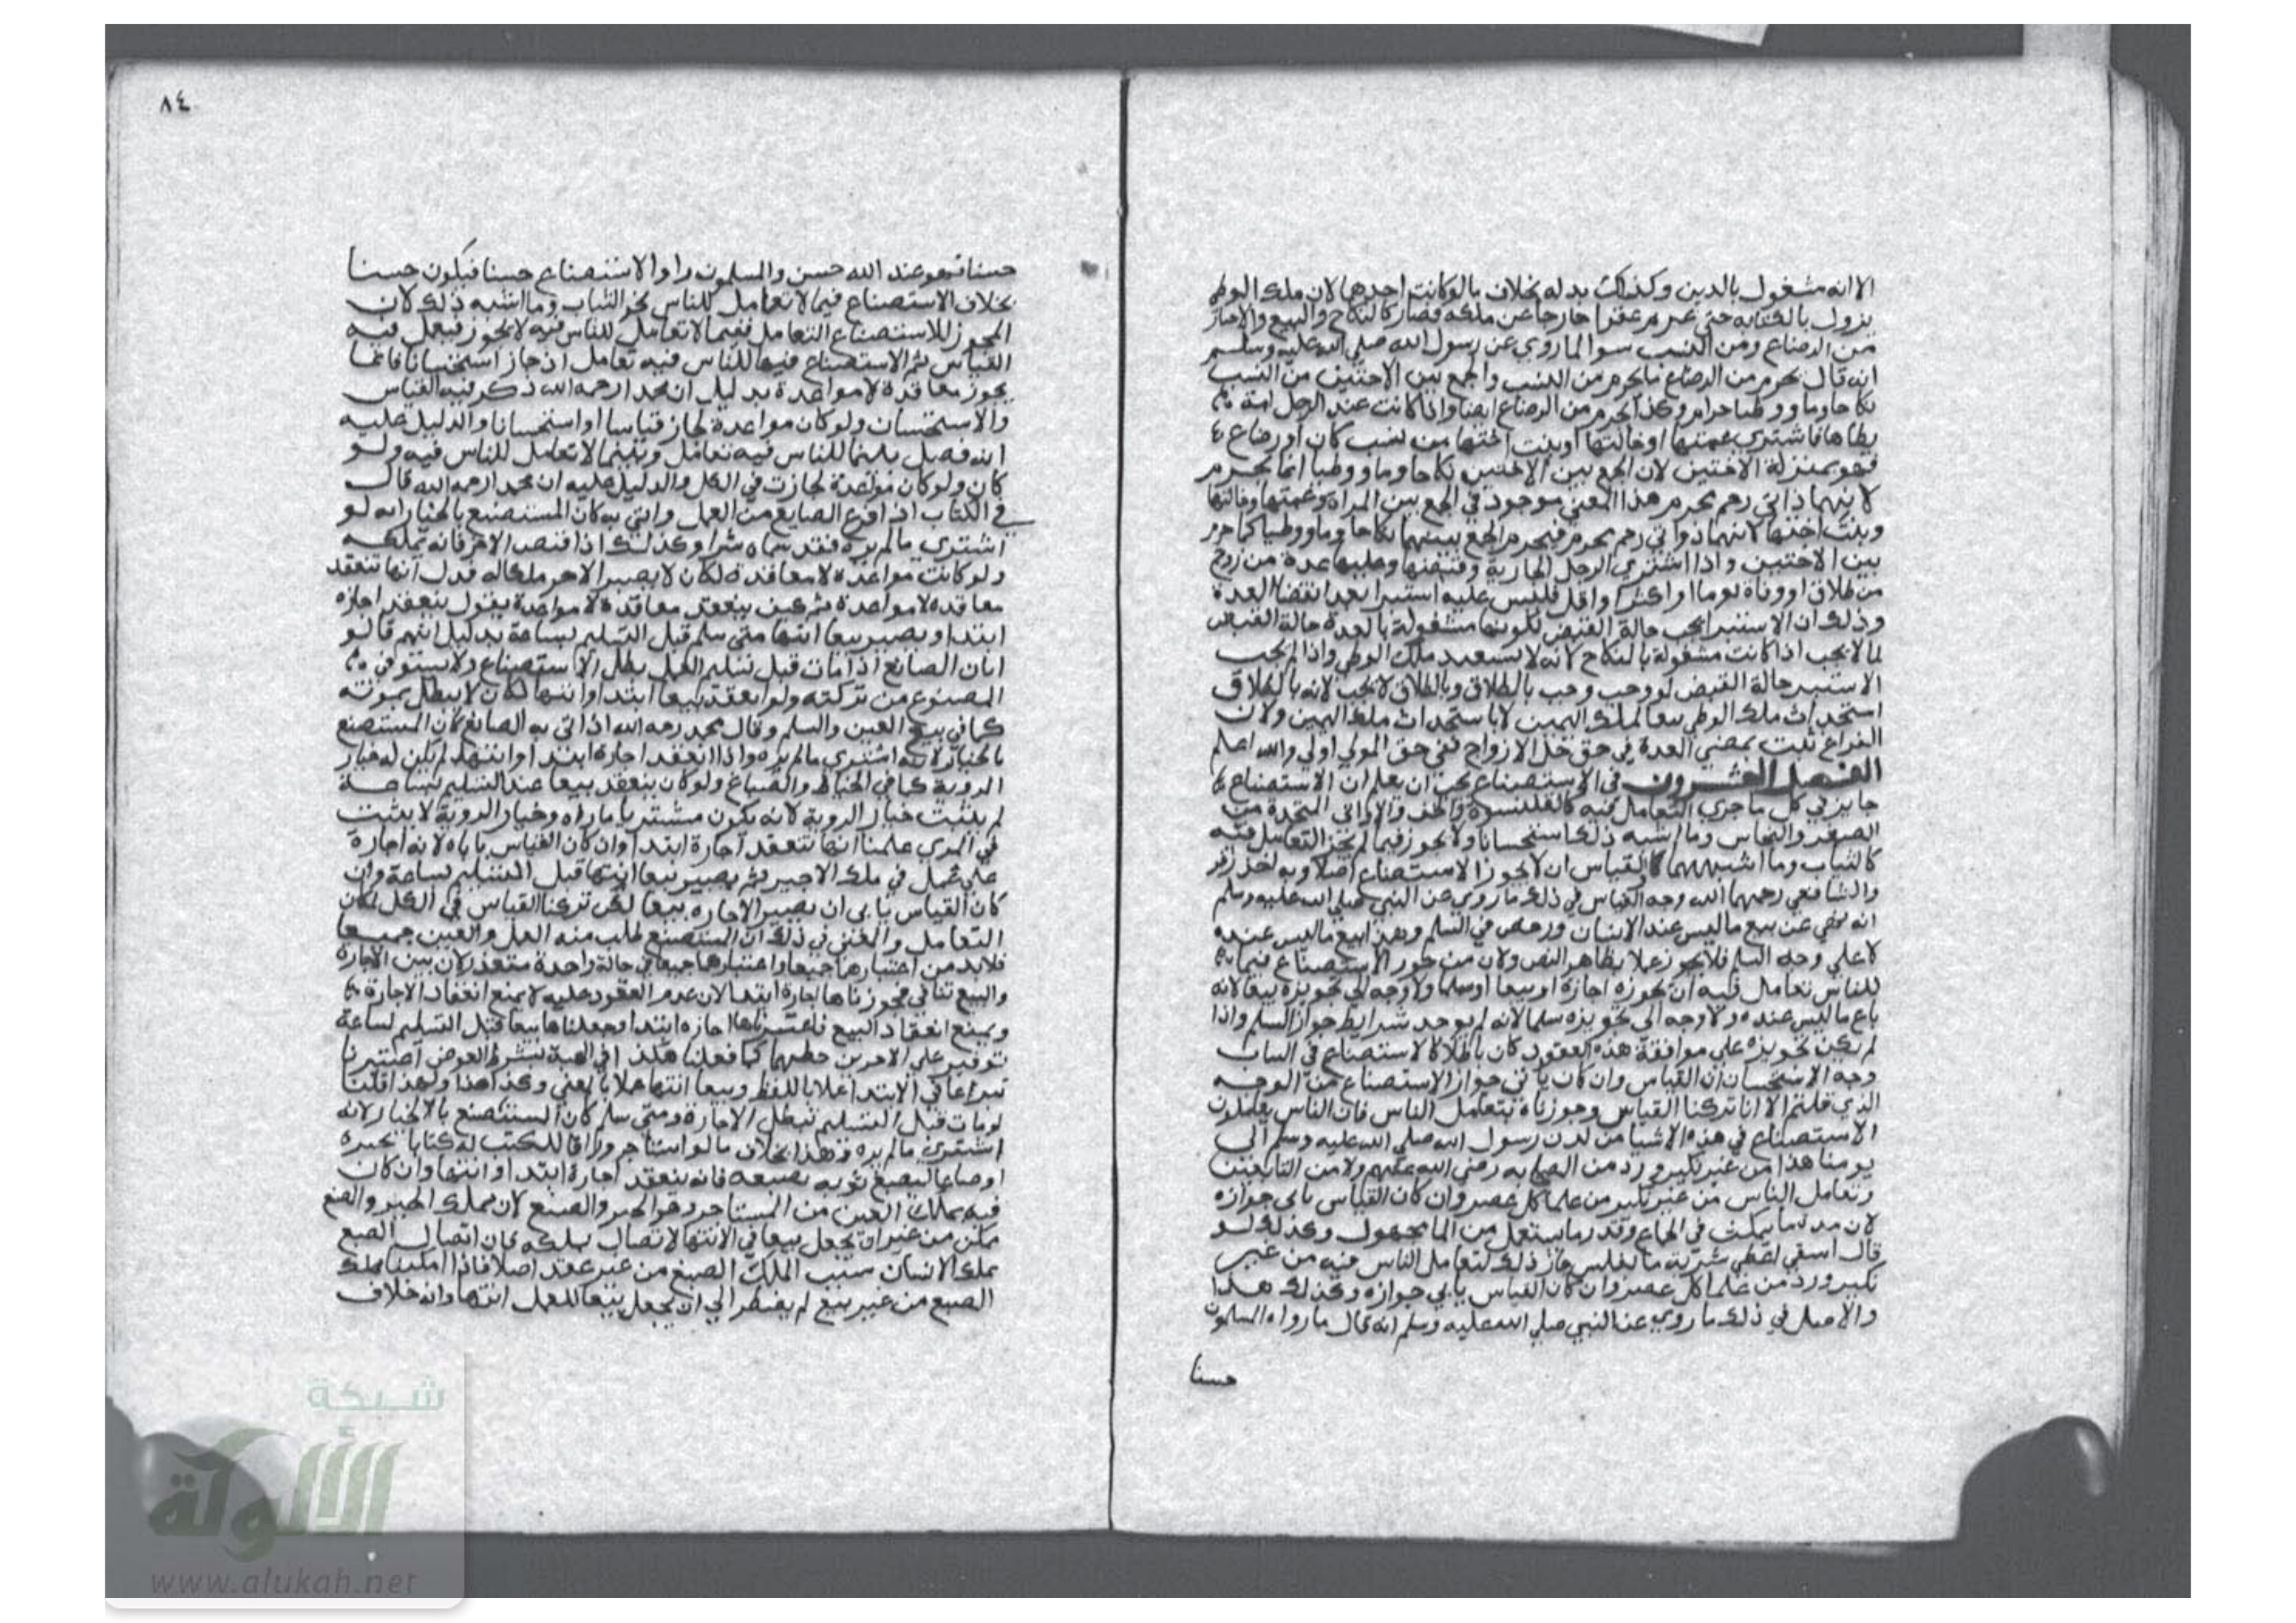 الا انه مشغول بالدين وكذلك بدله بخلاف بالوكانت احدهما لان ملك الوطي
يزول بالكتابه حتي غرم عقرا خارجا عن ملكه فصار كالنكاح والبيع والاجاز
من الرضاع ومن النسب سوا لما روي عن رسول الله صلي الله عليه وسلم
انه قال يحرم من الرضاع ما يحرم من النسب والجمع بين الاختين من النسب
نكاحا وما ووطيا حرام وكذا يحرم من الرضاع ايضا واذا كانت عند الرجل امة
يطاها فاشتري عمتها او خالتها او بنت اختها من نسب كان او رضاع
فهو بمنزلة الاختين لان الجمع بين الاختين نكاحا وما ووطيا انما يحرم
لانهما ذاتي رحم محرم هذا المعني موجود في الجمع بين المراة وعمتها وخالتها
وبنت اختها لانهما ذواتي رحم محرم فيحرم الجمع بينهما نكاحا وما ووطيا كما حرم
بين الاختين واذا اشتري الرجل الجارية وقبضها وعليها عدة من زوج
من طلاق او وفاة يوما او اكثر او اقل فليس عليه استبرا بعد انقضا العدة
وذلك ان الاستبرا يجب حالة القبض لكونها مشغولة بالعدة حالة القبض
لما لا يجب اذا كانت مشغولة بالنكاح لانه لا يستفيد ملك الوطي واذا لم يجب
الاستبرا حالة القبض لو وجب وجب بالطلاق وبالطلاق لا يجب لانه بالطلاق
استحداث ملك الوطي تبعا لملك اليمين لا باستحداث ملك اليمين ولان
الفراغ ثبت بمضي العدة في حق حل الازواج ففي حق المولي اولي والله اعلم
الفصل العشرون في الاستصناع يجب ان يعلم ان الاستصناع
جايز في كل ما جري التعامل فيه كالقلنسوة والخف والاواني المتخذة من
الصفر والنحاس وما اشبه ذلك استحسانا ولا يجوز فيما لم يجز التعامل فيه
كالثياب وما اشبهها كالقياس ان لا يجوز الاستصناع اصلا وبه اخذ زفر
والشافعي رحمهما الله وجه القياس في ذلك ما روي عن النبي صلي الله عليه وسلم
انه نهي عن بيع ما ليس عند الانسان ورخص في السلم وهذا بيع ما ليس عنده
لا علي وجه السلم فلا يجوز عملا بظاهر النص ولان من جوز الاستصناع فيما
للناس تعامل فيه ان يجوزه اجازة او بيعا او سلما ولا وجه الي تجويزه بيعا لانه
باع ما ليس عنده ولا وجه الي تجويزه سلما لانه لم يوجد شرايط جواز السلم واذا
لم يكن تجويزه علي موافقة هذه العقود كان باطلا كالاستصناع في الثياب
وجه الاستحسان ان القياس وان كان يابي جواز الاستصناع من الوجه
الذي قلتم الا انا تركنا القياس وجوزناه بتعامل الناس فان الناس يعاملون
الاستصناع في هذه الاشيا من لدن رسول الله صلي الله عليه وسلم الي
يومنا هذا من غير نكير ورد من الصحابه رضي الله عنهم ولا من التابعين
وتعامل الناس من غير نكير من علما كل عصر وان كان القياس يابي جوازه
لان مدة ما يمكث في الحمام وقدر ما يستعمل من الما مجهول وكذلك لو
قال اسقي اعطي شربة ما بفلس جاز ذلك لتعامل الناس فيه من غير
نكير ورد من علما كل عصر وان كان القياس يابي جوازه وكذلك هذا
والاصل في ذلك ما روي عن النبي صلي الله عليه وسلم انه قال ما رواه المسلمون
حسنا
٨٤
حسنا فهو عند الله حسن والمسلمون راوا الاستصناع حسنا فيكون حسنا
بخلاف الاستصناع فيما لا تعامل للناس نحو الثياب وما اشبه ذلك لان
المجوز للاستصناع التعامل ففيما لا تعامل للناس فيه لا يجوز فيعمل فيه
القياس ثم الاستصناع فيما للناس فيه تعامل اذ جاز استحسانا فانما
يجوز معاقدة لا مواعدة بدليل ان محمدا رحمه الله ذكر فيه القياس
والاستحسان ولو كان مواعدة لجاز قياسا او استحسانا والدليل عليه
انه فصل بينما للناس فيه تعامل وبينما لا تعامل للناس فيه ولو
كان ولو كان مواعدة لجازت في الكل والدليل عليه ان محمدا رحمه الله قال
في الكتاب اذا فرغ الصايغ من العمل واتي به كان المستصنع بالخيار انه لو
اشتري ما لم يره فقد سماه شرا وكذلك اذا قبض الاجر فانه يملكه
ولو كانت مواعدة لا معاقدة لكان لا يصير الاجر ملكا له فدل انها تنعقد
معاقده لا مواعدة ثم كيف ينعقد معاقدة لا مواعدة يقول ينعقد اجازه
ابتدا ويصير بيعا انتها متي سلم قبل التسليم بساعة بدليل انهم قالو
ابان الصانع اذا مات قبل تسليم العمل بطل الاستصناع ولا يستوفي
المصنوع من تركته ولو انعقد بيعا ابتدا وانتها لكان لا يبطل بموته
كما في بيع العين والسلم وقال محمد رحمه الله اذا اتي به الصانع كان المستصنع
بالخيار لانه اشتري ما لم يره واذا انعقد اجارة ابتدا وانتها لم يكن له خيار
الروية كما في الخياط والصباغ ولو كان ينعقد بيعا عند التسليم لساعة
لم يثبت خيار الروية لانه يكون مشتريا ما راه وخيار الروية لا يثبت
في المري علمنا انها تنعقد اجارة ابتدا وان كان القياس ياباه لانه اجارة
علي عمل في ملك الاجير ثم يصير بيعا انتها قبل التسليم بساعة وان
كان القياس يابي ان يصير الاجاره بيعا لكن تركنا القياس في الكل لكان
التعامل والمعني في ذلك ان المستصنع طلب منه العمل والعين جميعا
فلابد من اعتبارها جميعا واعتبارها جميعا في حالة واحدة متعذر لان بين الاجارة
والبيع تنافي فجوزناها اجارة ابتدا لان عدم المعقود عليه لا يمنع انعقاد الاجارة
ويمنع انعقاد البيع فاعتبرناها اجازه ابتدا وجعلناها بيعا قبل التسليم لساعة
توفير علي الامرين حظهما كما فعلنا هكذا في الهبة بشرط العوض اعتبرنا
تبرعا في الابتدا عملا باللفظ وبيعا انتها عملا بالمعني وكذا هذا ولهذا قلنا
لو مات قبل التسليم تبطل الاجارة ومتي سلم كان المستصنع بالاخيار لانه
اشتري ما لم يره وهذا بخلاف ما لو استاجر وراقا للكتب له كتابا بحبره
او صباغا ليصبغ ثوبه بصبغه فانه ينعقد اجارة ابتدا وانتها وان كان
فيه يملك العين من المستاجر وهو الحبر والصبغ لان تملك الحبر والصبغ
ممكن من غير ان يجعل بيعا في الانتها لاتصال بملكه فان اتصال الصبغ
بملك الانسان سبب الملك الصبغ من غير عقد اصلا فاذا امكننا تملك
الصبغ من غير بيع لم يضطر الي ان يجعل بيعا للعمل انتها وانه خلاف
شبكة
الألوكة
www.alukah.net